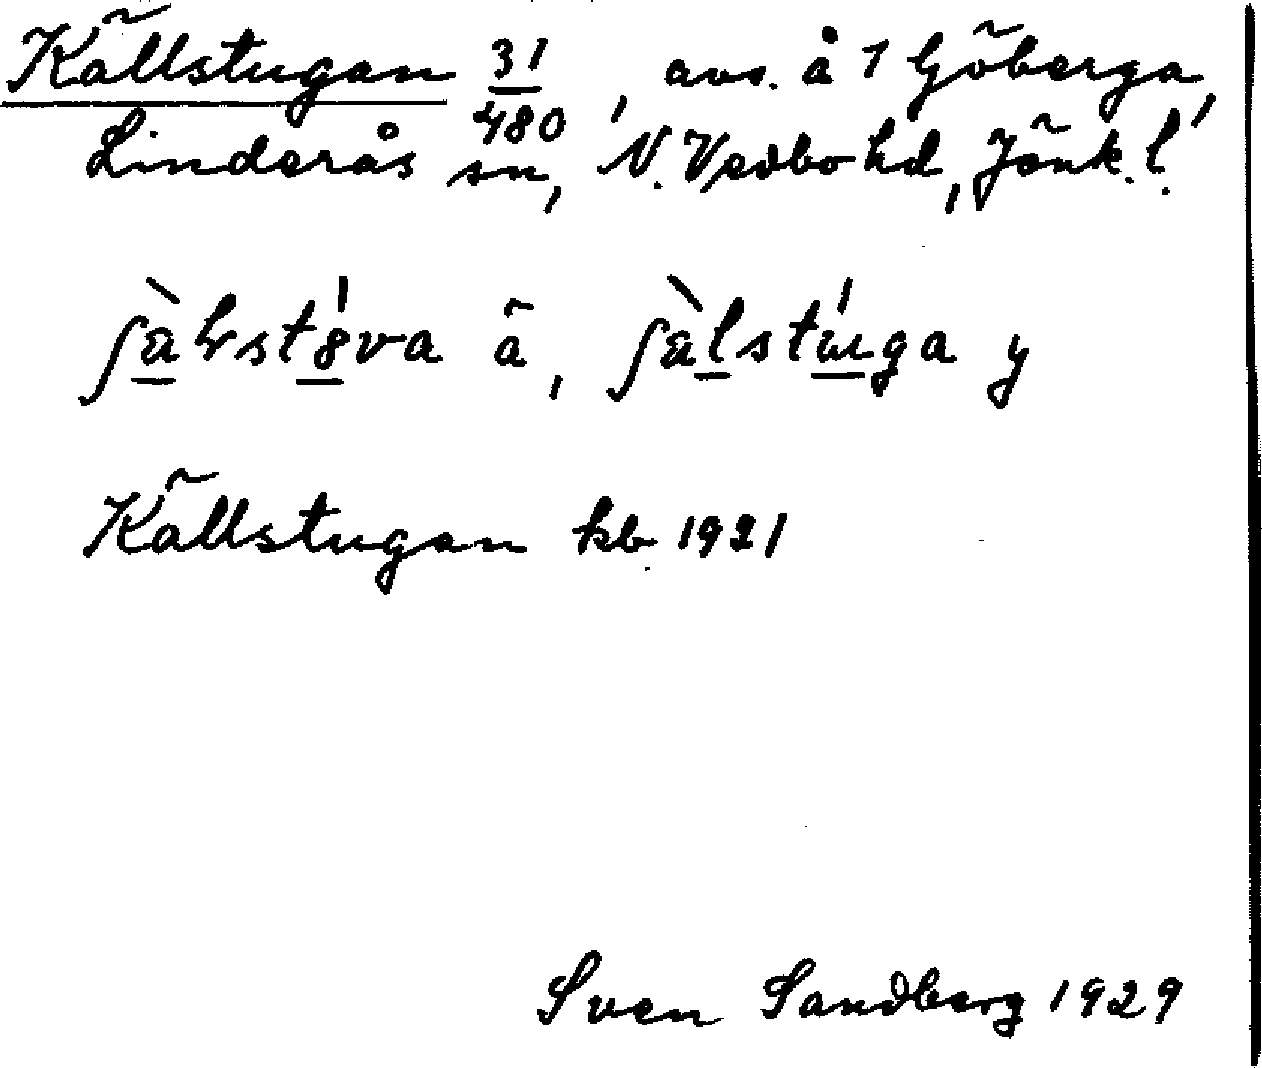 Källstugan 31/480, avs. å 1 Göberga,
Linderås sn, N. Vedbo hd, Jönk. l.
Källstugan kb 1921
Sven Sandberg 1929